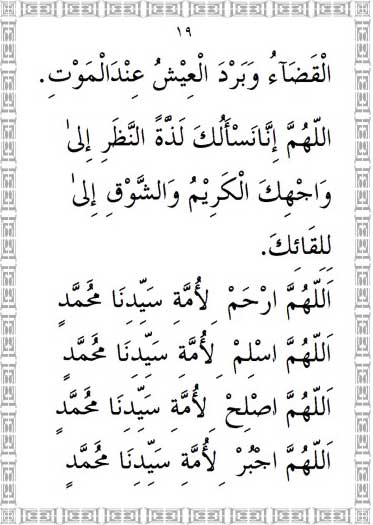 ١٩
الْقَضَآءُ وَبَرْدَ الْعِيْشُ عِنْدَالْمَوْتِ.
اللّهُمَّ إِنَّانَسْأَلُكَ لَذَّةً النَّظَرِ إِلىٰ
وَاجْهِكَ الْكَرِيْمُ وَالشَّوْقِ إِلىٰ
لِلقَائِكَ.
اَللّهُمَّ ارْحَمْ لِأُمَّةِ سَيِّدِنَا مُحَمَّدٍ
اَللّهُمَّ اسْلِمْ لِأُمَّةِ سَيِّدِنَا مُحَمَّدٍ
اَللّهُمَّ اصْلِحْ لِأُمَّةِ سَيِّدِنَا مُحَمَّدٍ
اَللّهُمَّ اجْبُرْ لِأُمَّةِ سَيِّدِنَا مُحَمَّدٍ